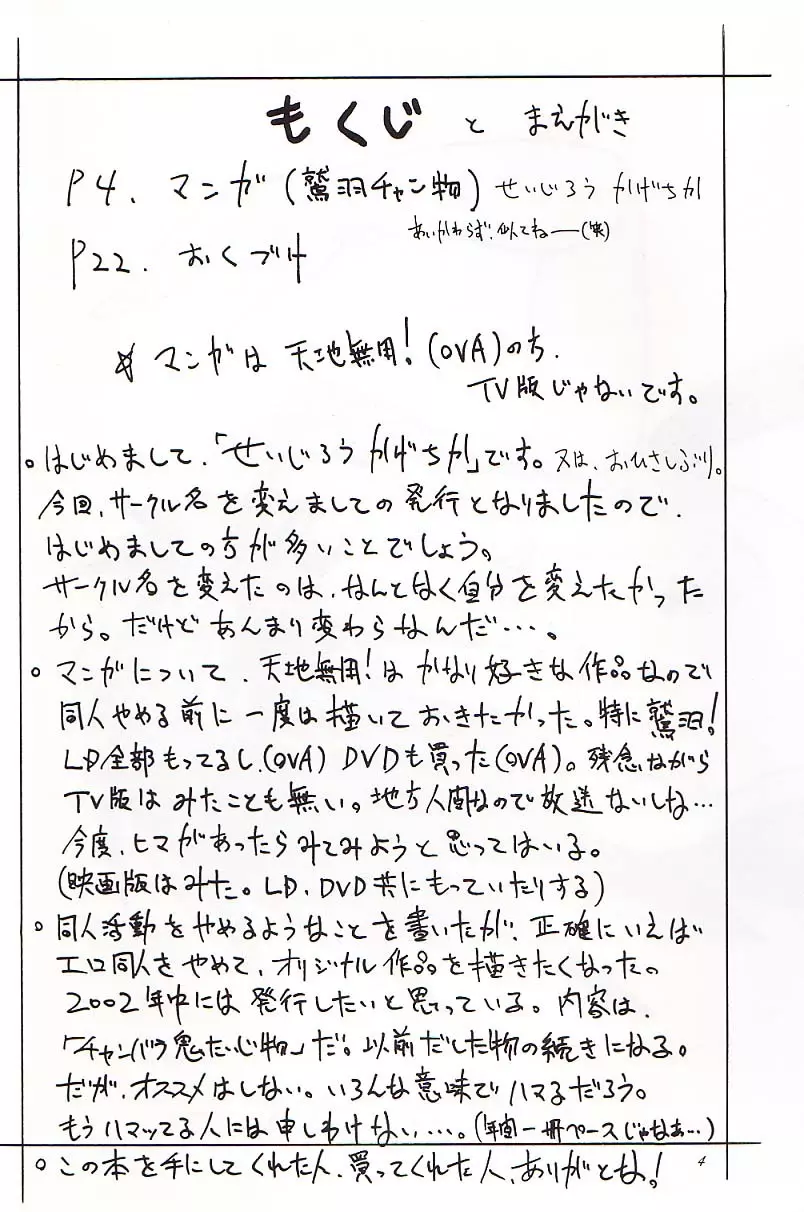 もくじ と まえがき
P4. マンガ(鷲羽チャン物) せいじろう かげちか
あいかわらず、似てねー(笑)
P22. おくづけ
☆ マンガは 天地無用!(OVA)のち.
TV版じゃないです。
○はじめまして.「せいじろう かげちか」です。又は、おひさしぶり。
今回、サークル名を変えましての発行となりましたので.
はじめましての方が多いことでしょう。
サークル名を変えたのは、なんとなく自分を変えたかった
から。だけど あんまり変わらなんだ…。
○ マンガについて. 天地無用!は かなり好きな作品なので
同人やめる前に一度は描いておきたかった。特に鷲羽!
LD全部もってるし.(OVA) DVDも買った(OVA)。残念ながら
TV版は みたことも無い。地方人間なので放送ないしね…
今度、ヒマがあったらみてみようと思ってはいる。
(映画版はみた。LD、DVD共にもっていたりする)
○ 同人活動をやめるようなことを書いたが、正確にいえば
エロ同人をやめて、オリジナル作品を描きたくなったの
2002年中には発行したいと思っている。内容は、
「チャンバラ鬼たいじ物」だ。以前だした物の続きになる。
だが、オススメはしない。いろんな意味でハマるだろう。
もうハマッてる人には申しわけない…。(年間一冊ペースじゃなぁ…)
○ この本を手にしてくれた人、買ってくれた人、ありがとな!
4